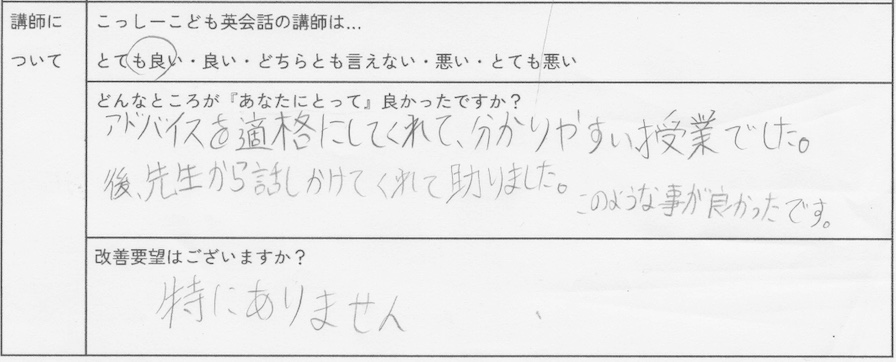 講師に
ついて
こっしーこども英会話の講師は…
とても良い・良い・どちらとも言えない・悪い・とても悪い
どんなところが『あなたにとって』良かったですか？
アドバイスを適格にしてくれて、分かりやすい授業でした。
後、先生から話しかけてくれて助りました。
このような事が良かったです。
改善要望はございますか？
特にありません